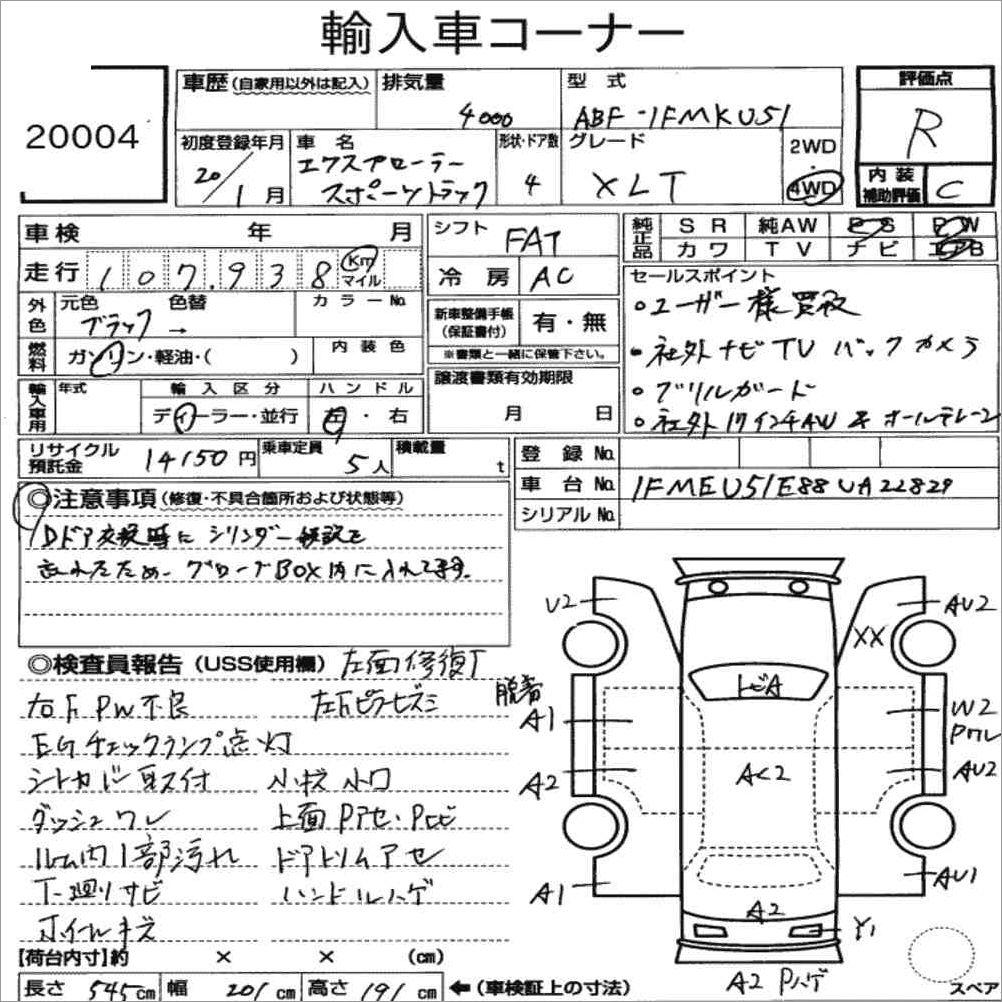 輸入車コーナー
20004
車歴(自家用以外は記入)
排気量
4000
型式
ABF-1FMKU51
評価点
R
初度登録年月
20/1月
車名
エクスプローラー
スポーツトラック
形状・ドア数
4
グレード
XLT
2WD
・
4WD
内装
補助評価
C
車検 年 月
シフト
FAT
純正品
SR 純AW PS PW
カワ TV ナビ エアB
走行 107,938 Km
マイル
冷房 AC
セールスポイント
○ユーザー様買取
・社外ナビTV バックカメラ
○グリルガード
○社外17インチAW & オールテレーン
外色
元色 色替 カラーNo.
ブラック →
新車整備手帳
(保証書付)
有・無
※書類と一緒に保管下さい。
燃料
ガソリン・軽油・( )
内装色
輸入車用
年式
輸入区分
ディーラー・並行
ハンドル
左・右
譲渡書類有効期限
月 日
リサイクル
預託金
14150円
乗車定員
5人
積載量
t
登録No.
車台No. 1FMEU51E88UA22829
シリアルNo.
◎注意事項(修復・不具合箇所および状態等)
Dドア交換時にシリンダー移設を
忘れたため、グローブBOX内に入れてます。
◎検査員報告(USS使用欄) 左面修復
右F PW不良
EGチェックランプ点灯
小キズ
ダッシュワレ
上面
ルーム内1部汚れ
ドアトリムアセ
下廻サビ
ハンドルハゲ
ホイールキズ
U2
AU2
XX
脱着
A1
W2
Pワレ
トビA
A2
AC2
AU2
A1
AU1
A2
Y1
A2 Pハゲ
スペア
【荷台内寸】約 × × (cm)
長さ 545cm 幅 201cm 高さ 191cm ←(車検証上の寸法)